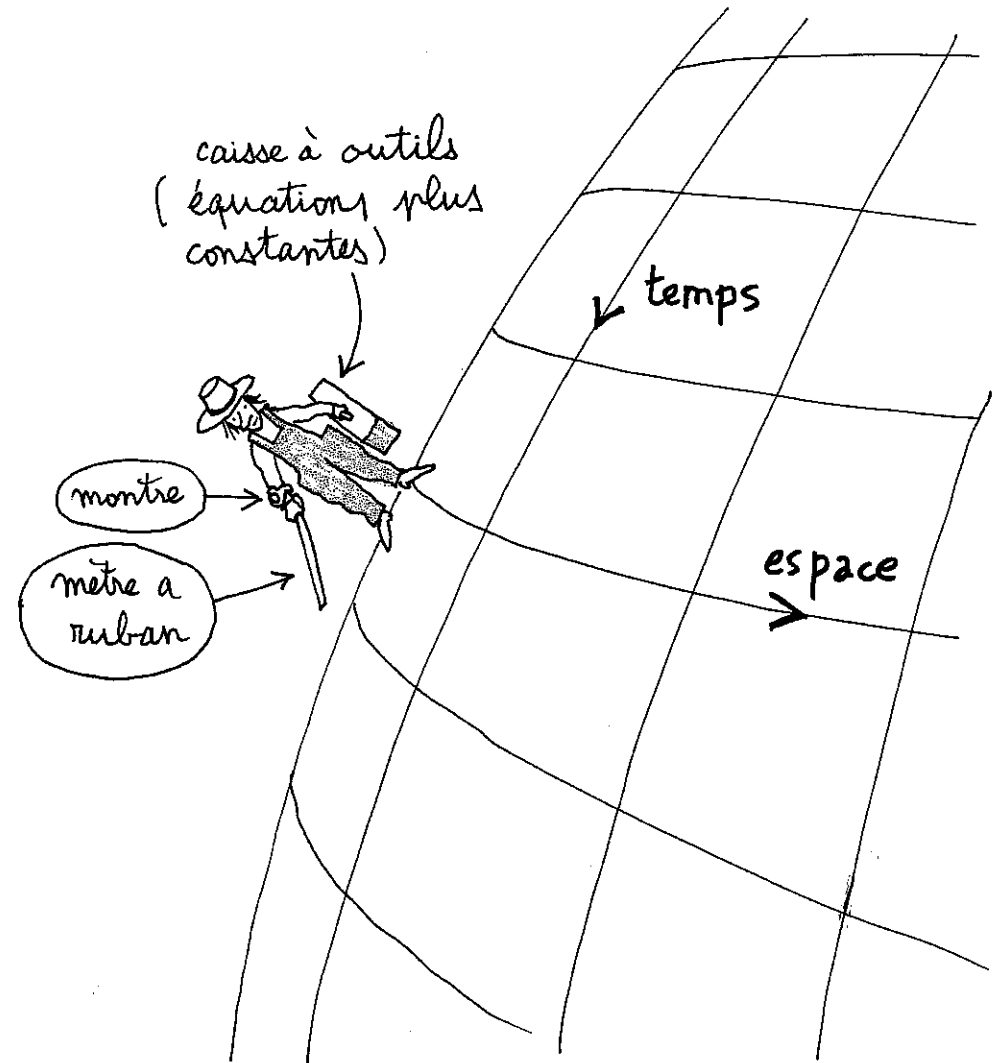 caisse à outils
( équations plus
constantes)
temps
montre
espace
mètre a
ruban